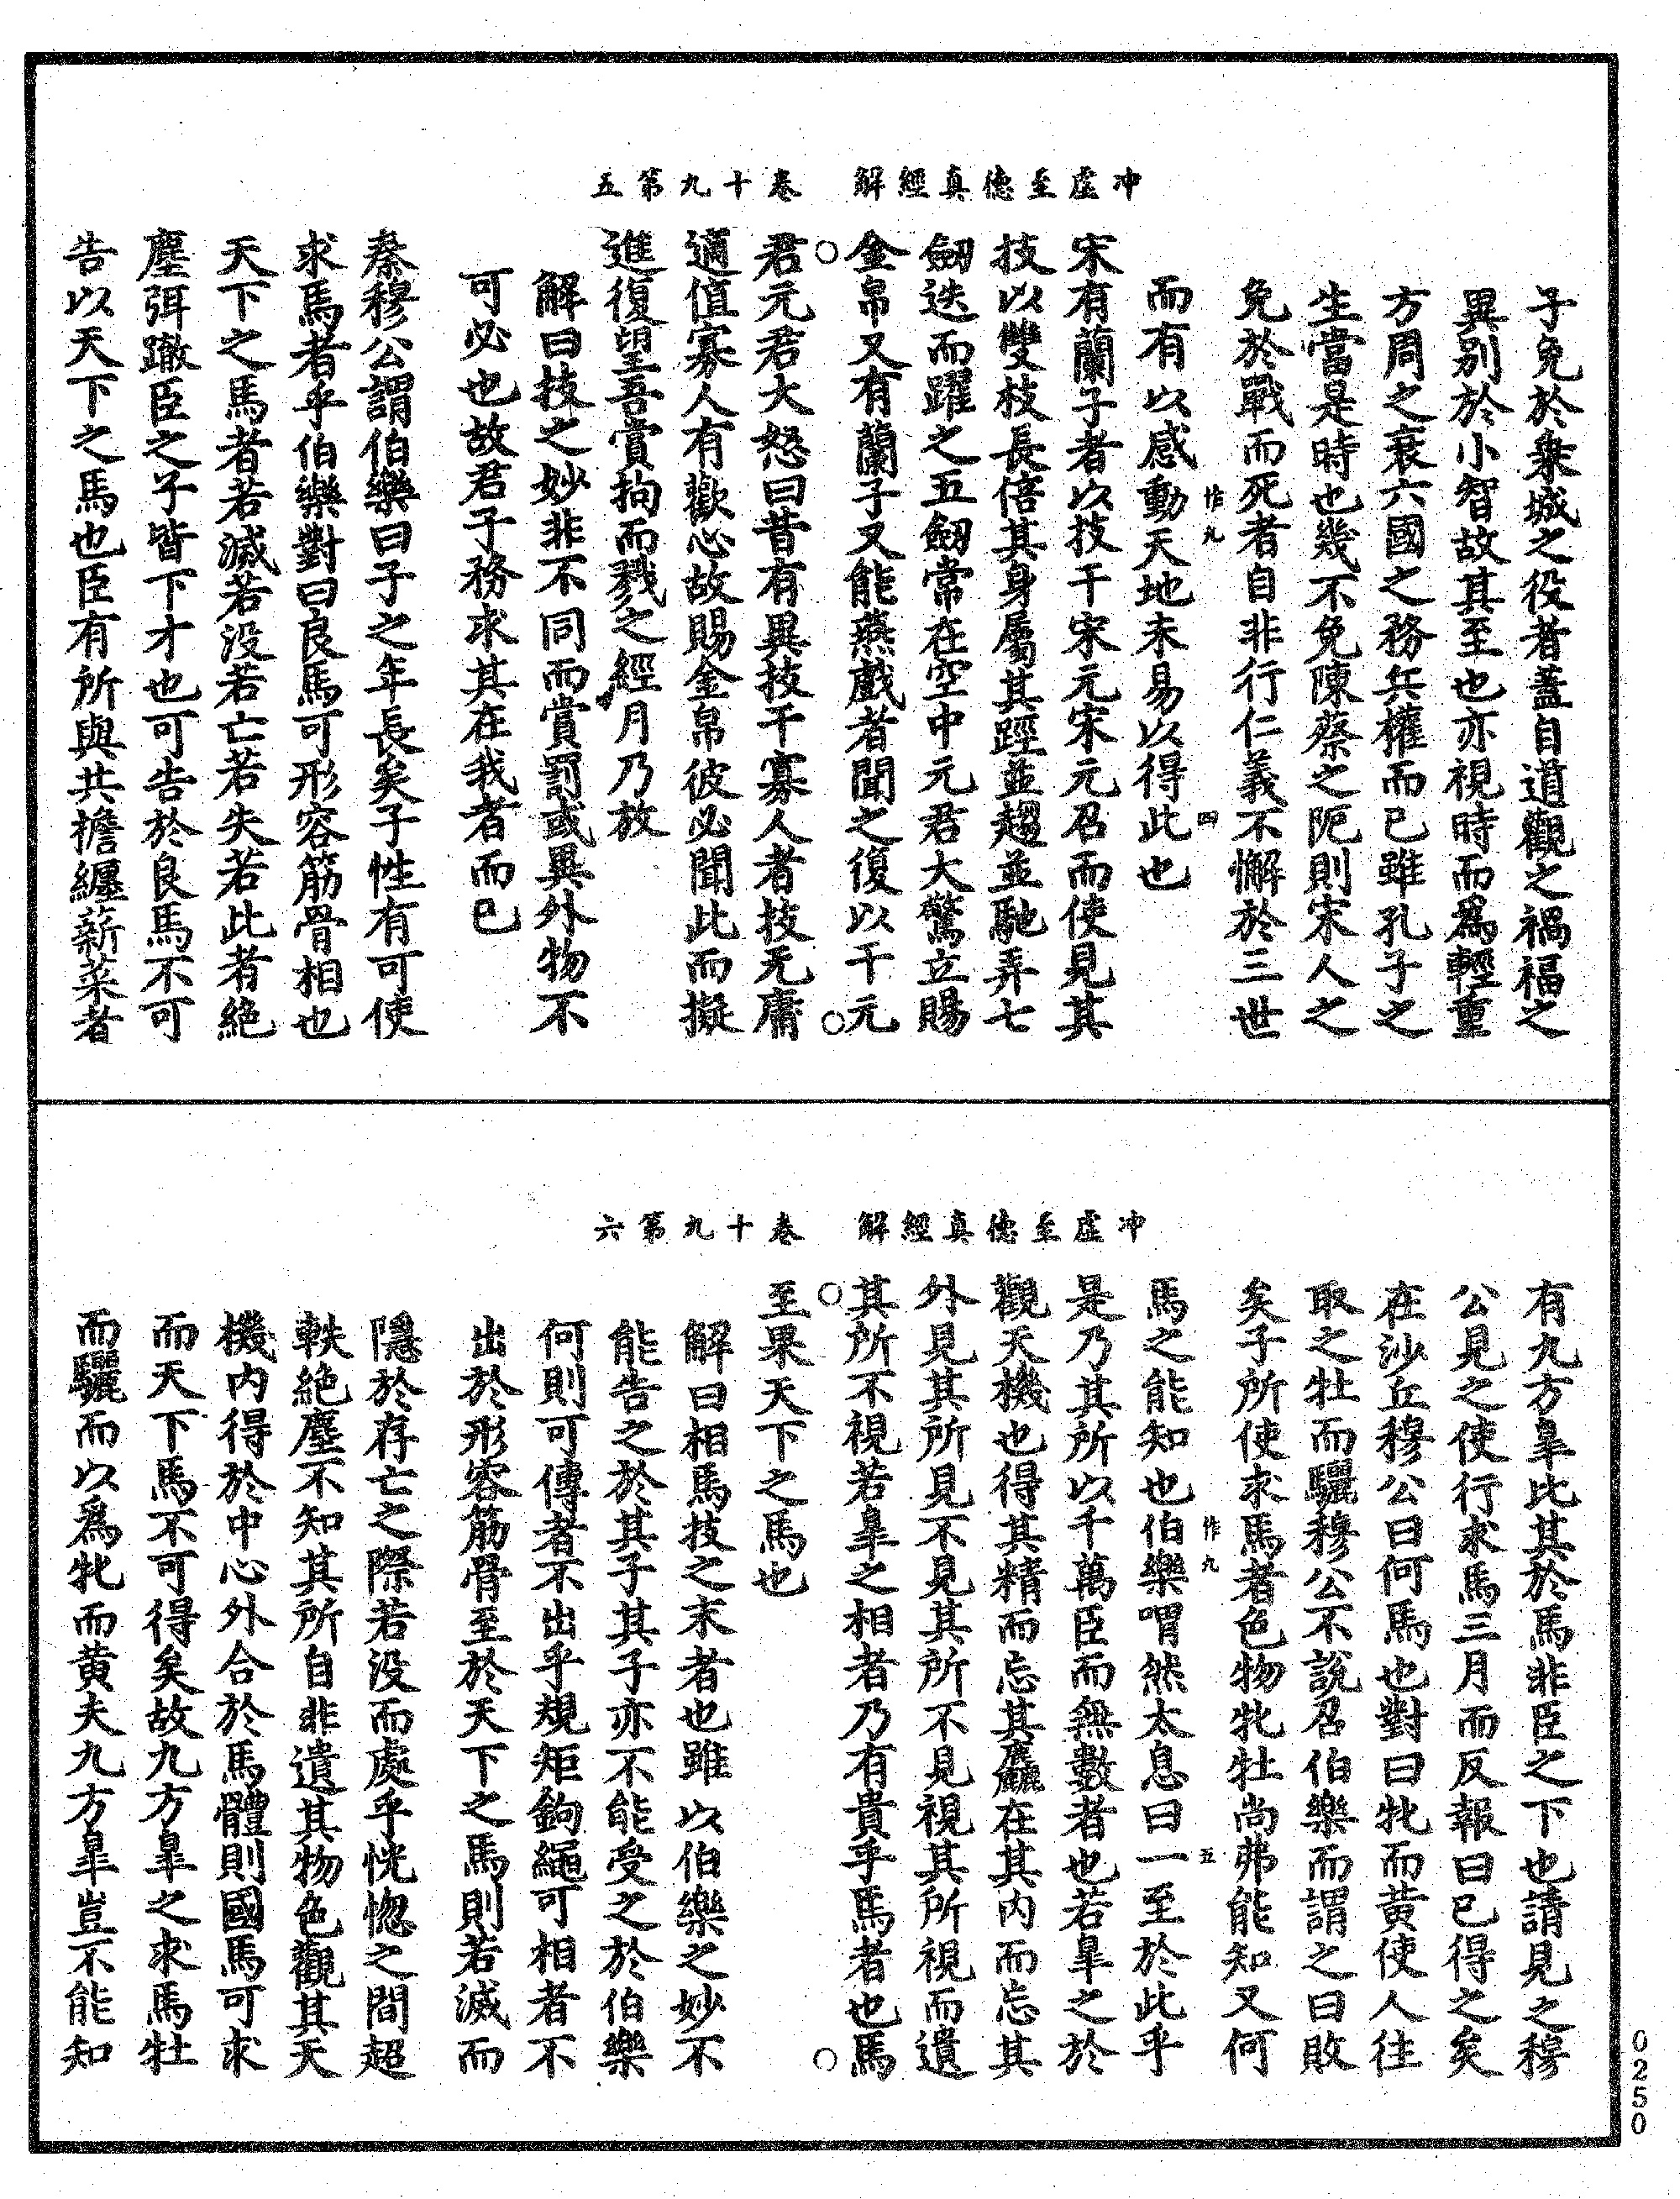 冲虛至德真經解　卷十九第五
子免於乗城之役者蓋自道觀之禍福之
異別於小智故其至也亦視時而爲輕重
方周之衰六國之務兵權而已雖孔子之
生當是時也幾不免陳蔡之阨則宋人之
免於戰而死者自非行仁義不懈於三世
作九　四
而有以感動天地未易以得此也
宋有蘭子者以技干宋元宋元召而使見其
技以雙枝長倍其身屬其踁並趨並馳弄七
劒迭而躍之五劒常在空中元君大驚立賜
金帛又有蘭子又能燕戲者聞之復以干元
君元君大怒曰昔有異技干寡人者技无庸
適值寡人有歡心故賜金帛彼必聞此而擬
進復望吾賞拘而戮之經月乃放
解曰技之妙非不同而賞罰或異外物不
可必也故君子務求其在我者而已
秦穆公謂伯樂曰子之年長矣子性有可使
求馬者乎伯樂對曰良馬可形容筋骨相也
天下之馬者若滅若沒若亡若失若此者絕
塵弭躈臣之子皆下才也可告於良馬不可
告以天下之馬也臣有所與共擔纏薪菜者
冲虛至德真經解　卷十九第六
有九方皐此其於馬非臣之下也請見之穆
公見之使行求馬三月而反報曰已得之矣
在沙丘穆公曰何馬也對曰牝而黄使人往
取之牡而驪穆公不說召伯樂而謂之曰敗
矣子所使求馬者色物牝牡尚弗能知又何
作九　五
馬之能知也伯樂喟然太息曰一至於此乎
是乃其所以千萬臣而無數者也若皐之於
觀天機也得其精而忘其麤在其内而忘其
外見其所見不見其所不見視其所視而遺
其所不視若皐之相者乃有貴乎馬者也馬
至果天下之馬也
解曰相馬技之末者也雖以伯樂之妙不
能告之於其子其子亦不能受之於伯樂
何則可傳者不出乎規矩鉤繩可相者不
出於形容筋骨至於天下之馬則若滅而
隱於存亡之際若沒而處乎恍惚之間超
軼絕塵不知其所自非遺其物色觀其天
機内得於中心外合於馬體則國馬可求
而天下馬不可得矣故九方皐之求馬牡
而驪而以爲牝而黄夫九方皐豈不能知
0250